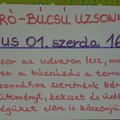 RÓ-BÚCSÚ UZSON
US 01. szerda 16
sor az udvaron lesz, m
en a készülés a term
sonnához szeretnénk kér
üteményt, kekszet és üdí
ségüket előre is köszönjü